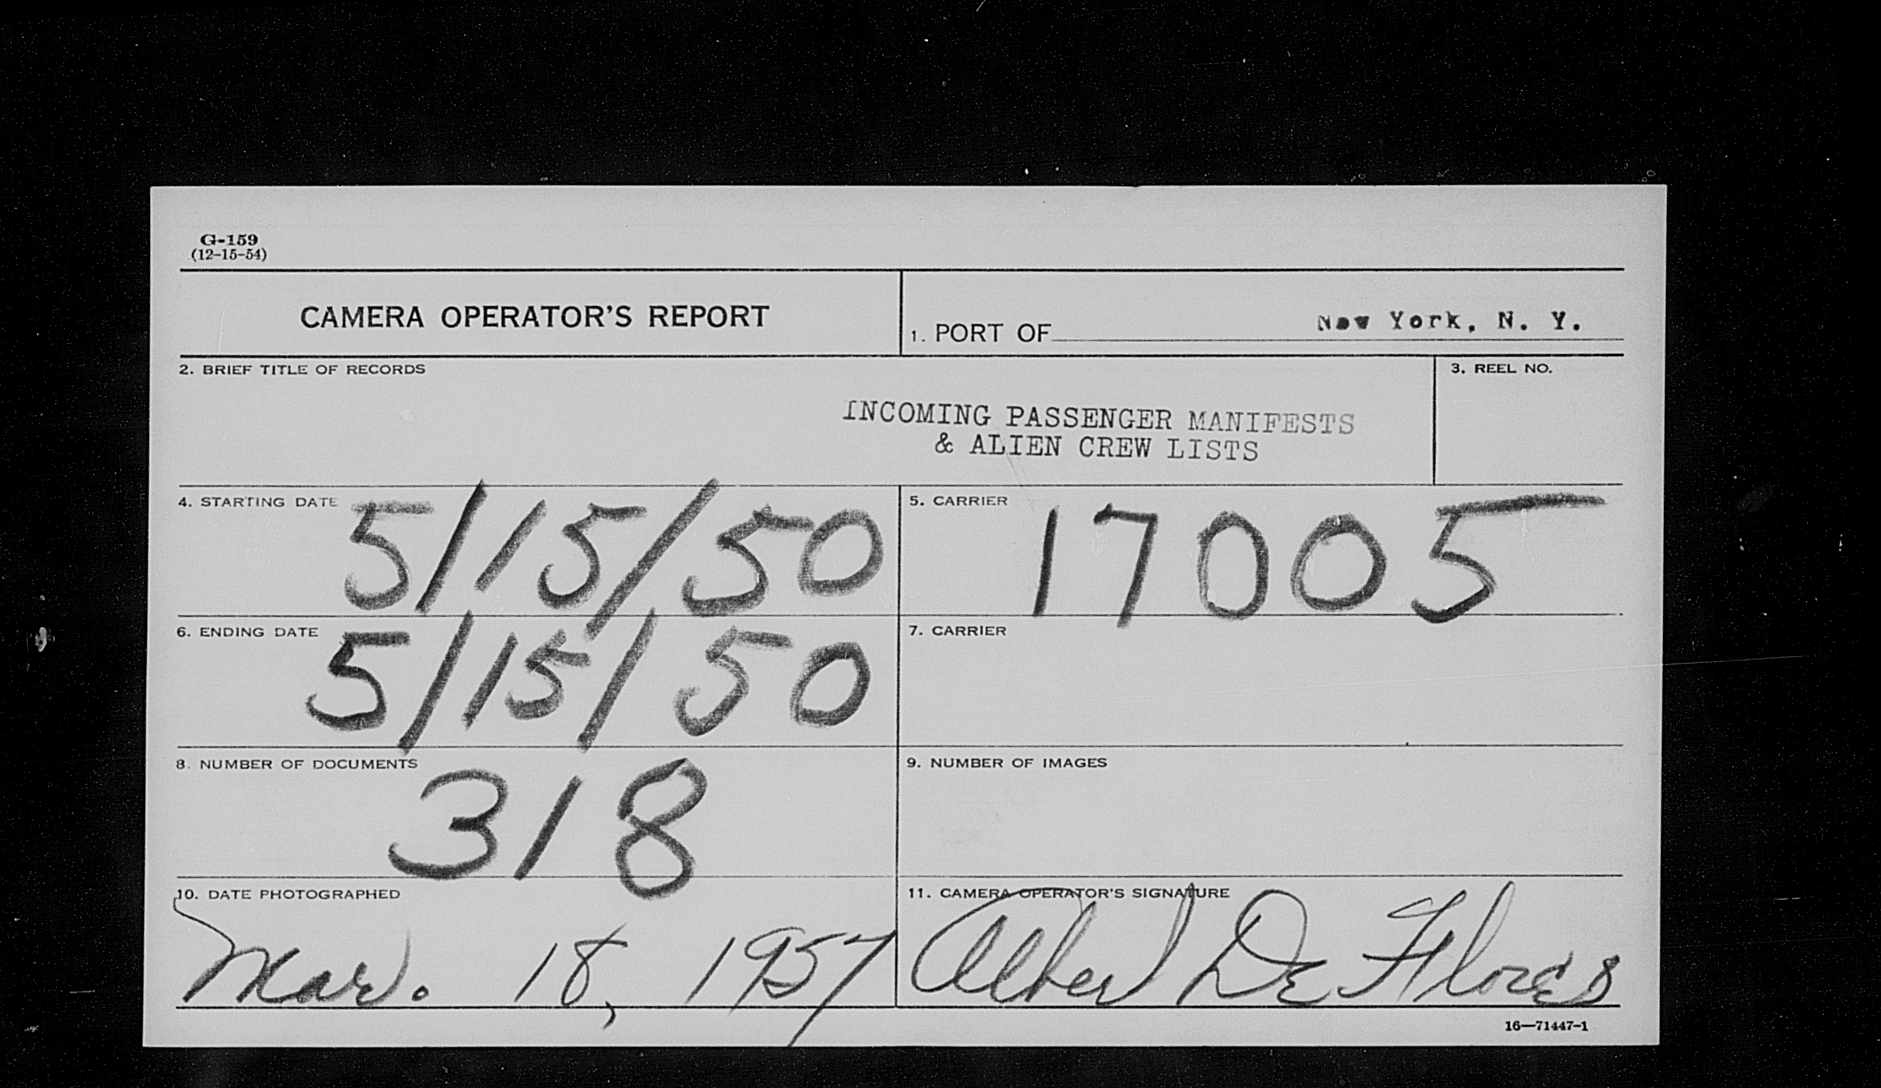 G-159
(12-15-54)
CAMERA OPERATOR'S REPORT
1. PORT OF New York, N. Y.
2. BRIEF TITLE OF RECORDS
3. REEL NO.
INCOMING PASSENGER MANIFESTS
& ALIEN CREW LISTS
4. STARTING DATE 5/15/50
5. CARRIER 17005
6. ENDING DATE 5/15/50
7. CARRIER
8. NUMBER OF DOCUMENTS 318
9. NUMBER OF IMAGES
10. DATE PHOTOGRAPHED
Mar. 18, 1957
11. CAMERA OPERATOR'S SIGNATURE
Albert De Flores
16—71447-1